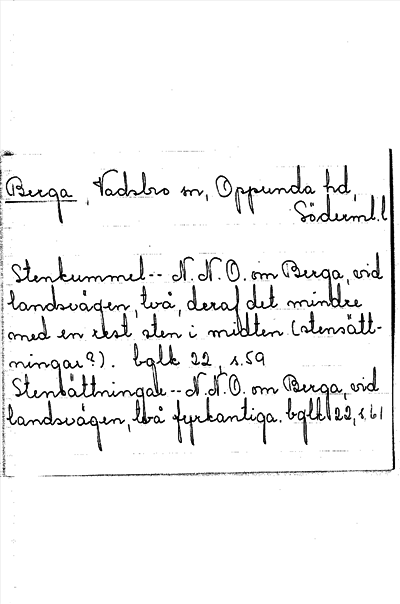 Berga, Vadsbro sn, Oppunda hd,
Söderml.l
Stenkummel -- N.N.O. om Berga, vid
landsvägen, två, deraf det mindre
med en rest sten i midten (stensätt-
ningar?). bglk 22, s.59
Stensättningar -- N.N.O. om Berga, vid
landsvägen, två fyrkantiga. bglk 22, s.61